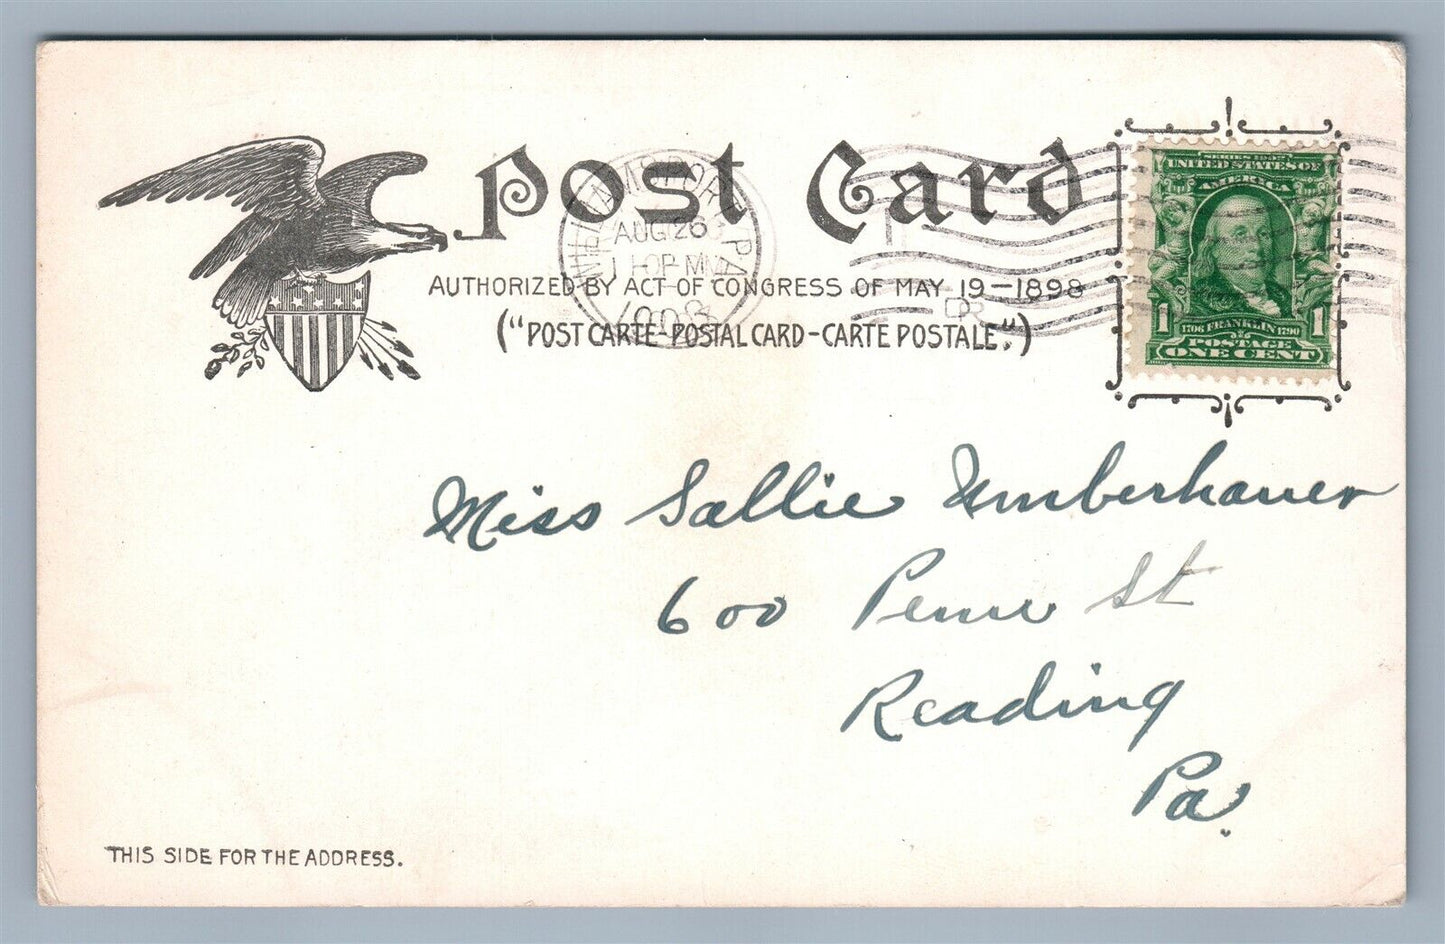 Post Card
AUTHORIZED BY ACT OF CONGRESS OF MAY 19-1898
("POST CARTE-POSTAL CARD-CARTE POSTALE".)
WILLIAMSPORT, PA
AUG 26
1908
SERIES 1902
UNITED STATES OF
AMERICA
1 1706 FRANKLIN 1790 1
POSTAGE
ONE CENT
Miss Sallie Umberhauer
600 Penn St
Reading
Pa.
THIS SIDE FOR THE ADDRESS.